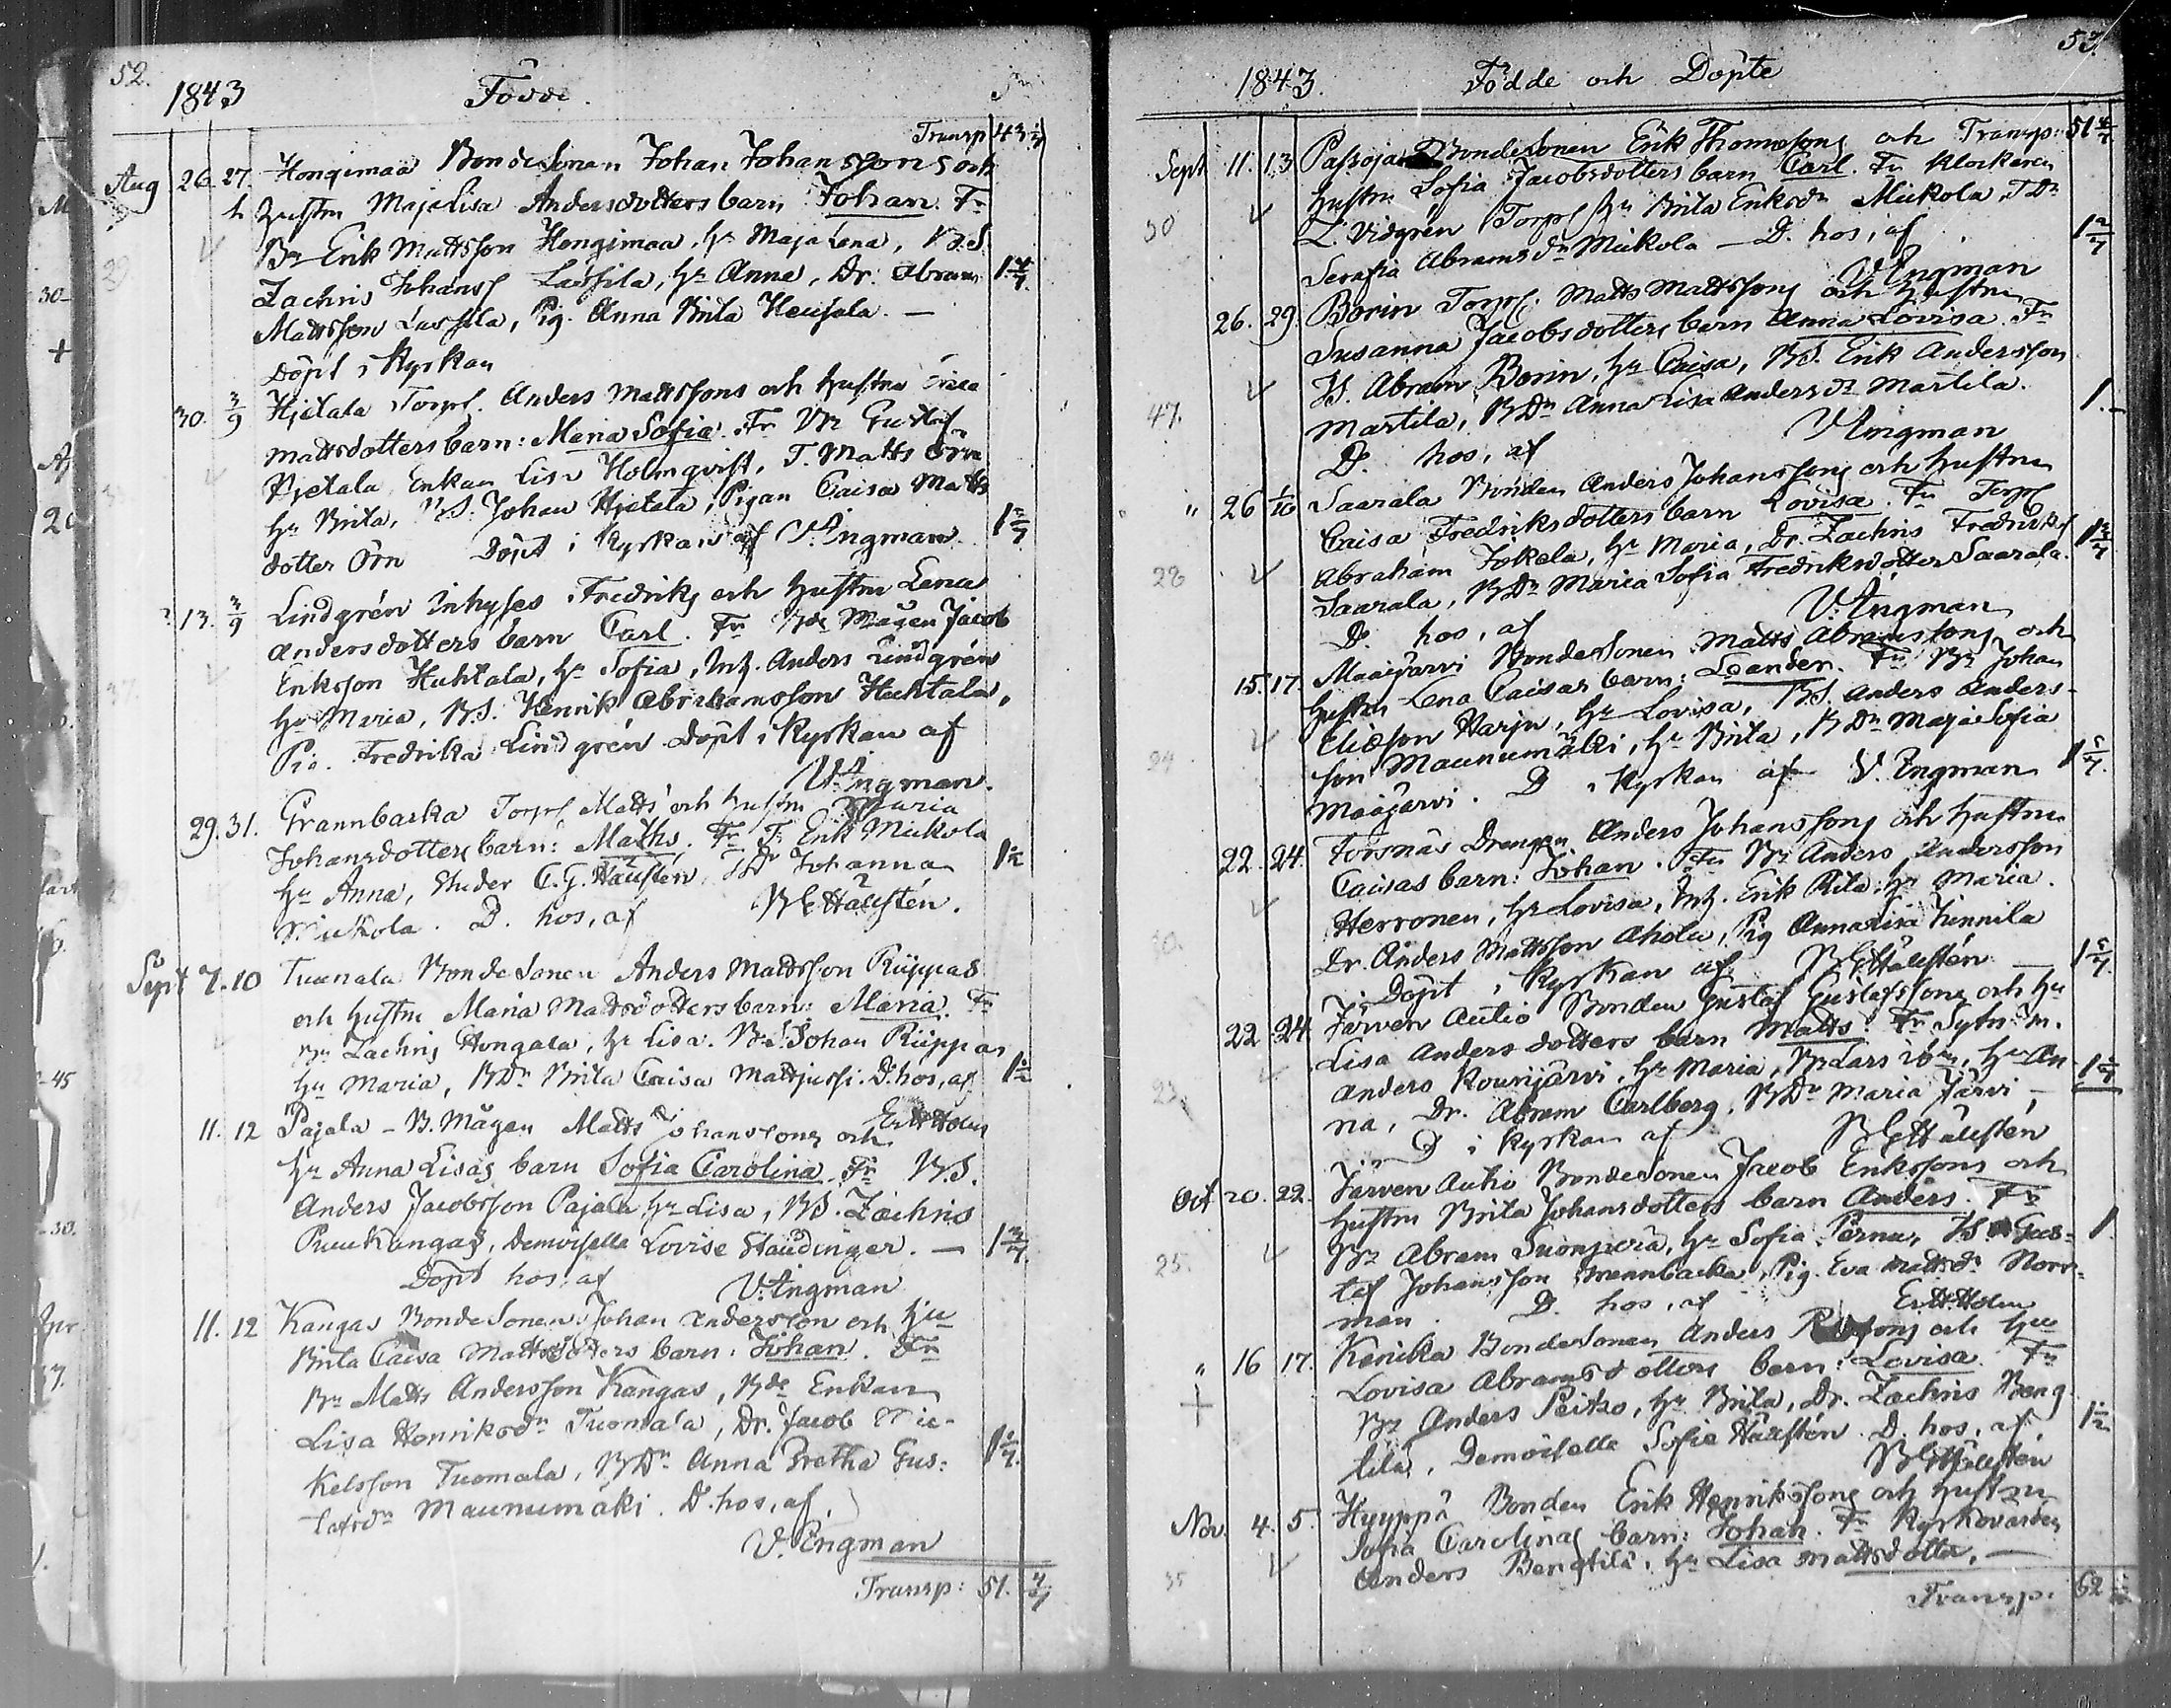 52.
1843 Födde.
Transp 43
Aug 26. 27. Hongimaa Bondesonen Johan Johanssons och
h Hustru Maja Lisa Andersdotters barn Johan. Fr
Br Erik Mattsson Hongimaa, Hr Maja Lena, B.S
Zachris Johanss Lassila, Hr Anna, Dr. Abram
Mattsson Lassila, Pig. Anna Brita Heusala. —
Döpt i Kyrkan
30. 3/9 Hjetala Torp. Anders Mattssons och Hustru
Mattsdotters barn: Maria Sofia. Fr Br Gustaf
Hjetala Enkan Lisa Holmqvist, T. Matts Örn
Hr Brita, B.S. Johan Hjetala, Pigan Caisa Matts
dotter Örn Döpt i Kyrkan af V. Ingman
13. 3/9 Lindgrén Inhyses Fredriks och Hustru Lena
Andersdotters barn Carl. Fr Bde Mågen Jacob
Eriksson Huhtala, Hr Sofia, Inh. Anders Lindgrén
Hr Maria, B.S. Henrik Abrahamsson Huhtala,
Pig. Fredrika Lindgrén Döpt i Kyrkan af
V. Ingman.
29. 31. Grannbacka Torp Matts och Hustru Maria
Johansdotters barn: Maths. Fr T. Erik Mickola
Hr Anna, Studer C. G. Hällstén, TDr Johanna
Mickola. D. hos, af B E Hällstén. 1 1/2
Sept 7. 10 Tuomala Bonde Sonen Anders Mattsson Rüppas
och Hustru Maria Mattsdotters barn: Maria. Fr
Br Zachris Hongala, Hr Lisa. B.S. Johan Rüppas
Hu Maria, BDr Brita Caisa Mattjussi. D. hos, af 1 1/2
Er. H. Holm
11. 12 Pajala - B. Mågen Matts Johanssons och
Hr Anna Lisas barn Sofia Carolina. Fr B.S.
Anders Jacobsson Pajala, Hr Lisa, BS. Zachris
Puukangas, Demoiselle Lovise Staudinger. —
Döpt hos, af V. Ingman
11. 12 Kangas Bonde Sonen Johan Andersson och Hu
Brita Caisa Mattsdotters barn: Johan. Fr
Br Matts Andersson Kangas, Bde Enkan
Lisa Henriksdr Tuomala, Dr. Jacob Mic-
kelsson Tuomala, BDr Anna Gretha Gus-
tafsdr Maunumäki. D. hos, af
V. Ingman
Transp: 51.
53.
1843. Födde och Döpte
Sept 11. 13 Passoja Bondesonen Erik Thomassons och Transp: 51
Hustru Sofia Jacobsdotters barn Carl. Fr Klockaren
30 Z. Vidgrén Torp Hr Brita Eriksdr Mickola, TDr
Serafia Abramsdr Mickola — D. hos, af
V Ingman
26. 29. Borin Torp. Matts Mattssons och Hustru
Susanna Jacobsdotters barn Anna Lovisa. Fr
B. Abram Borin, Hr Caisa, BS. Erik Andersson
47. Martila, BDr Anna Lisa Andersdr Martila. 1. -
D. hos, af V Ingman
" 26 1/10 Saarala Bonden Anders Johanssons och Hustru
Caisa Fredriksdotters barn Lovisa. Fr Torp
28 Abraham Jokela, Hr Maria, Dr. Zachris Fredriks
Saarala, BDr Maria Sofia Fredriksdotter Saarala.
D. hos, af V. Ingman
15. 17. Maajärvi Bonde Sonen Matts Abramssons och
Hustru Lena Caisas barn: Leander. Fr Br Johan
Eliasson Harju, Hr Lovisa, B.S. Anders Anders-
24 son Maunumäki, Hr Brita, BDr Maja Sofia
Maajärvi. D i Kyrkan af V. Ingman
22. 24. Forsnäs Drengen Anders Johanssons och Hustru
Caisas barn: Johan. Fr Br Anders Andersson
Herronen, Hr Lovisa, Inh. Erik Rita, Hr Maria.
Dr. Anders Mattsson Ahola, Pig Anna Lisa Junnila
Döpt i Kyrkan af B E Hällstén —
22 24 Järven Autio Bonden Gustaf Gustafssons och Hu
Lisa Anders dotters barn Matts. Fr Sytn. m.
Anders Kounijärvi, Hr Maria, Br Lars ibm, Hr An-
na, Dr. Abram Carlberg, BDr Maria Järvi —
D i Kyrkan af B E Hällstén
Oct 20. 22. Järven Autio Bondesonen Jacob Erikssons och
Hustru Brita Johansdotters barn Anders. Fr
Br Abram Suonperä, Hr Sofia Pernu, BS Gus- 1.
25. taf Johansson Grannbacka, Pig. Eva Mattsdr Norr-
man. D. hos, af Er H. Holm
" 16 17. Kericka Bonde Sonen Anders och Hu
Lovisa Abramsdotters barn: Lovisa. Fr
+ Br Anders Peitso, Hr Brita, Dr. Zachris Beng-
tila, Demoiselle Sofie Hällstén. D. hos, af 1 1/2
B E Hällstén
Nov. 4. 5. Hyyppä Bonden Erik Henrikssons och Hustru
Sofia Carolinas barn: Johan. Fr Kyrkovärden
35 Anders Bengtilä, Hr Lisa Mattsdotter, —
Transp. 62